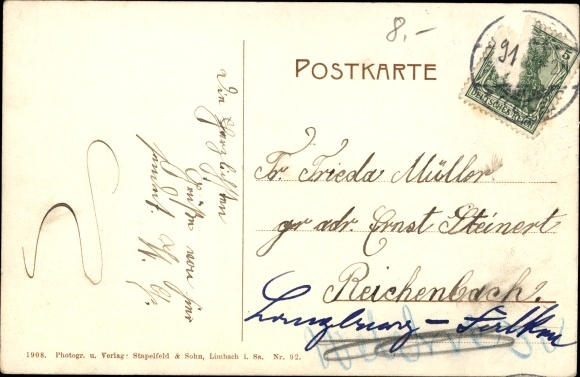 8.-
POSTKARTE
5
DEUTSCHES REICH
91
Die herzlichsten
Grüße von hier
sendet
Fr. Frieda Müller
gr adr. Ernst Steinert
Reichenbach.
1908. Photogr. u. Verlag: Stapelfeld & Sohn, Limbach i. Sa. Nr. 92.